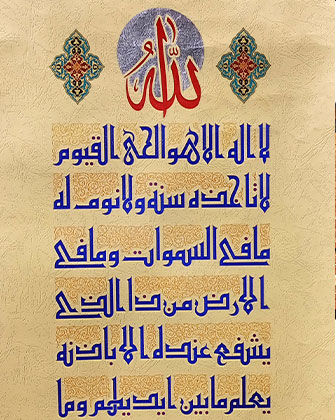 الله
لا اله الا هو الحی القیوم
لا تاخذه سنة ولا نوم له
ما فی السموات و ما فی
الارض من ذا الذی
یشفع عنده الا باذنه
یعلم ما بین ایدیهم و ما